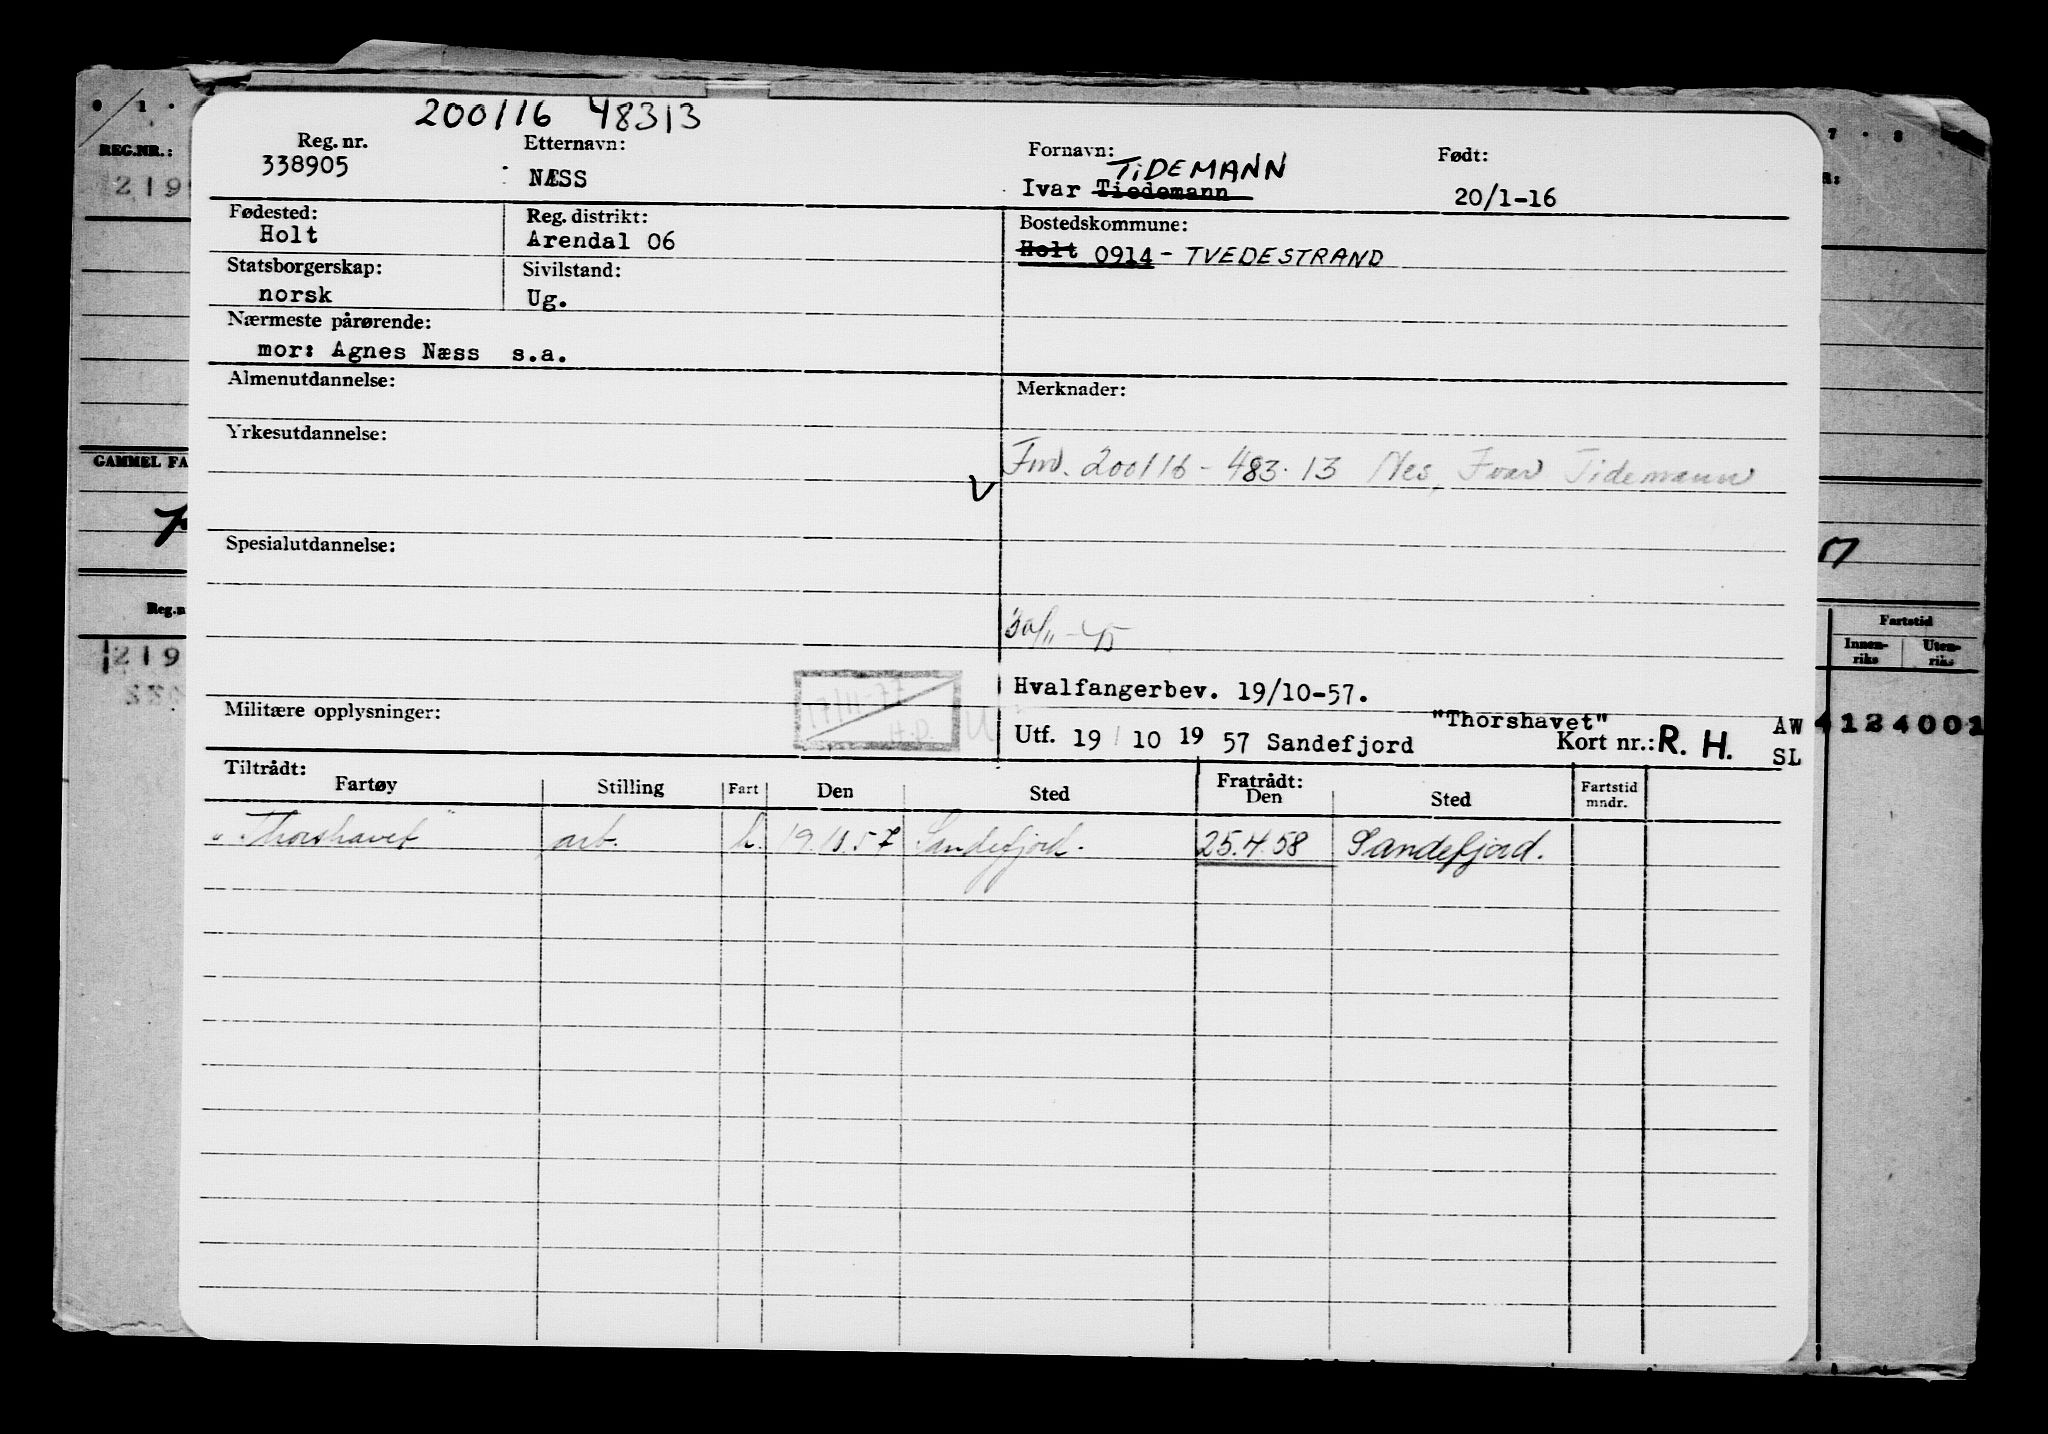 200116 48313
Reg. nr. Etternavn: Fornavn: Født:
338905 NÆSS Ivar Tiedemann TIDEMANN 20/1-16
Fødested: Reg. distrikt: Bostedskommune:
Holt Arendal 06 Holt 0914 - TVEDESTRAND
Statsborgerskap: Sivilstand:
norsk Ug.
Nærmeste pårørende:
mor: Agnes Næss s.a.
Almenutdannelse: Merknader:
Yrkesutdannelse:
Fnr. 200116 - 483.13 Nes, Ivar Tidemann
V
Spesialutdannelse:
30/11-45
17/11-77
H.P.
Hvalfangerbev. 19/10-57.
Militære opplysninger:
"Thorshavet" AW
Utf. 19/10 1957 Sandefjord Kort nr.: R. H. SL
Tiltrådt: Fratrådt:
Fartøy Stilling Fart Den Sted Den Sted Fartstid mndr.
"Thorshavet" arb. h. 19.10.57 Sandefjord. 25.4.58 Sandefjord.
0 1 . 2
REG.NR.:
219
GAMMEL FA
Reg.n
219
7 . 8
R:
Fartstid
Innen-
riks
Uten-
riks
4124001